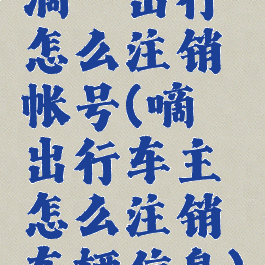 滴 出行
怎么注销
帐号(嘀
出行车主
怎么注销
车辆信息)